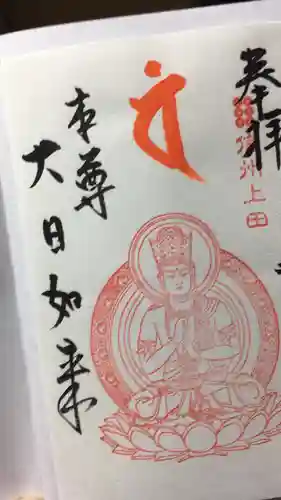 奉拝
信州上田
本尊
大日如来